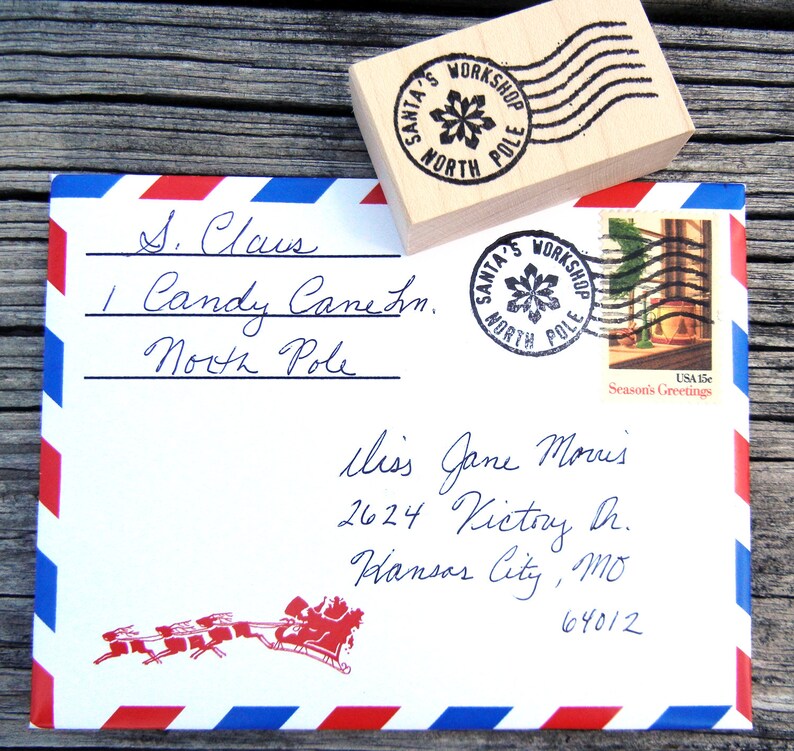 SANTA'S WORKSHOP
NORTH POLE
S. Claus
1 Candy Cane Ln.
North Pole
SANTA'S WORKSHOP
NORTH POLE
USA 15c
Season's Greetings
Miss Jane Morris
2624 Victory Dr.
Kansas City, MO
64012